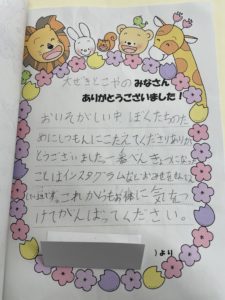 大ぜきとこやのみなさん
ありがとうございました！
おいそがしい中ぼくたちのた
めにしつもんにこたえてくださりありが
とうございました。一番べんきょうになった
ことはインスタグラムなどお店をせんでん
これからもお体に気をつ
けてがんばってください。
)より